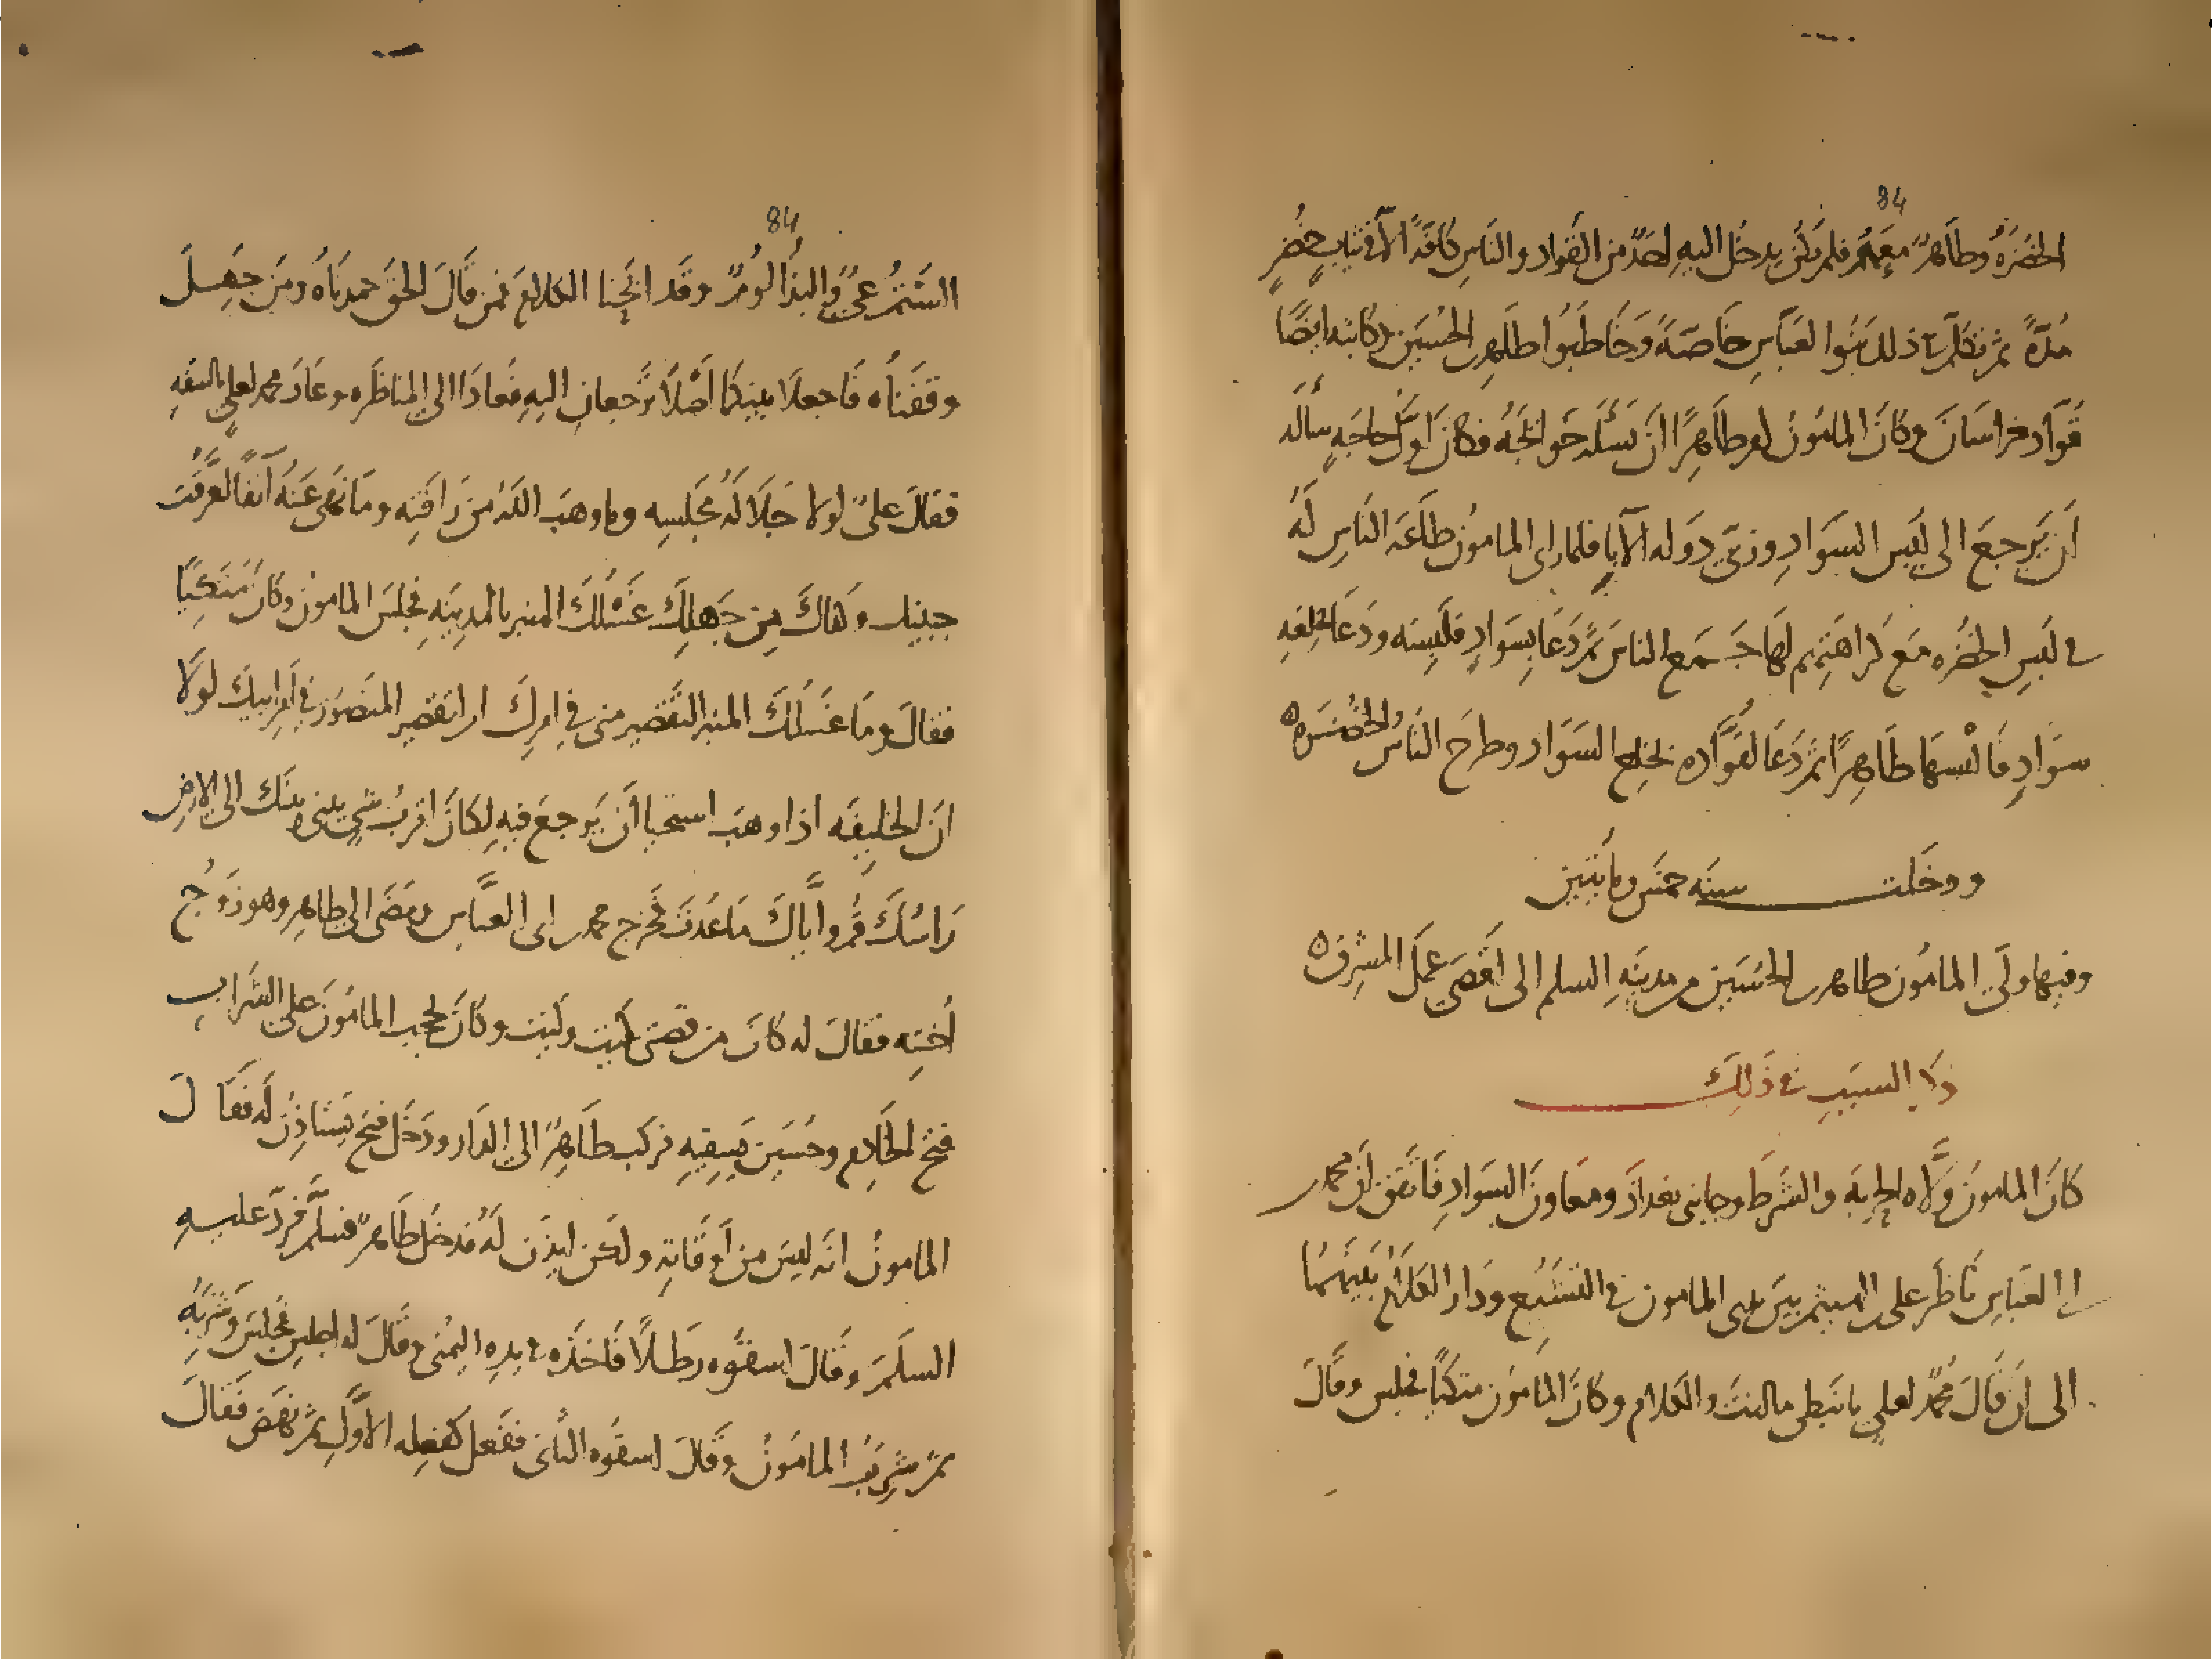 84
الخضرة وطاهرٌ معهم فلم يكن يدخل اليه احدٌ من القواد والناس كافةً الا في ثياب خضرٍ
مُدّةً ثم تكلم في ذلك بنوا العباس خاصةً وخاطبوا طاهر بن الحسين وكاتبه ايضًا
قوّاد خراسان وكان المامون امر طاهرًا ان يسئله حوائجه فكان اول حاجةٍ سأله
ان يرجع الى لبس السواد وزيّ دوله الآباء فلما راى المامون طاعة الناس له
في لبس الخضره مع كراهتهم لها جمع الناس ثم دعا بسوادٍ فلبسه ودعا بخلعه
سوادٍ فالبسها طاهرًا ثم دعا لقوّاده بخلع السواد وطرح الناس الخضره
ودخلت سنه خمس ومائتين
وفيها ولّى المامون طاهر بن الحسين من مدينه السلم الى اقصى عمل المشرق
ذكر السبب في ذلك
كان المامون ولّاه الجزيه والشرط وجانبى بغداد ومعاون السواد فاتفق ان محمد
بن ابى العباس ناظر على بن الهيثم بين يدى المامون في التشيع ودار الكلام بينهما
الى ان قال محمدٌ لعلي يا نبطى ما انت والكلام وكان المامون متكئًا فجلس وقال
84
الشتم عيٌّ والبذا لومٌ وقد ابحنا الكلام فمن قال الحق حمدناه ومن جهل
وقفناه فاجعلا بينكما اصلًا ترجعان اليه فعادا الى المناظره وعاد محمد لعلي بالسفه
فقال علىٌّ لولا جلالة مجلسه وما وهب الله من رافته وما نهى عنه آنفًا لعرّقت
جبينك وكفاك من جهلك غسلك المنبر بالمدينه فجلس المامون وكان متكيًا
فقال وما غسلك المنبر التقصير منى في امرك ام لتقصير المنصور في امر ابيك لولا
ان الخليفه اذا وهب استحيا ان يرجع فيه لكان اقرب شي بينى وبينك الى الارض
راسك قم واياك ما عدت فخرج محمد بن ابى العباس ومضى الى طاهر وهو زوج
اخته فقال له كان من قصتى كيت وكيت وكان يحجب المامون على الشراب
فتح الخادم وحسين يسقيه فركب طاهرٌ الى الدار ودخل فتح يستاذن له فقال
المامون انه ليس من اوقاته ولكن ايذن له فدخل طاهرٌ فسلّم فردّ عليه
السلم وقال اسقوه رطلًا فاخذه في يده اليمنى وقال له اجلس فجلس وشربه
ثم شرب المامون وقال اسقوه الثانى ففعل كفعله الاول ثم نهض فقال